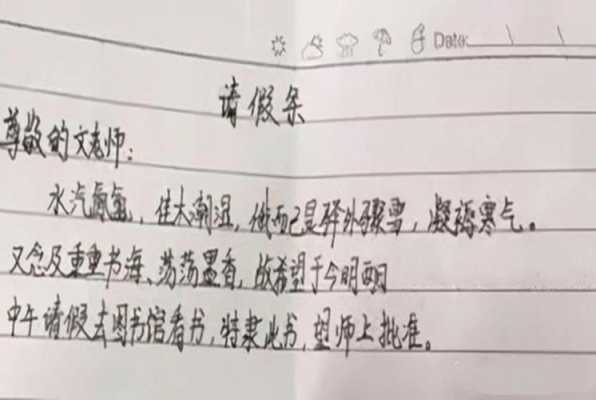 Date:
请假条
尊敬的文老师：
水汽氤氲，佳木潮湿，俄而已是驿外骤雪，凝稀寒气。
又念及重重书海、荡荡墨香，故希望于今明两日
中午请假去图书馆看书，特隶此书，望师上批准。